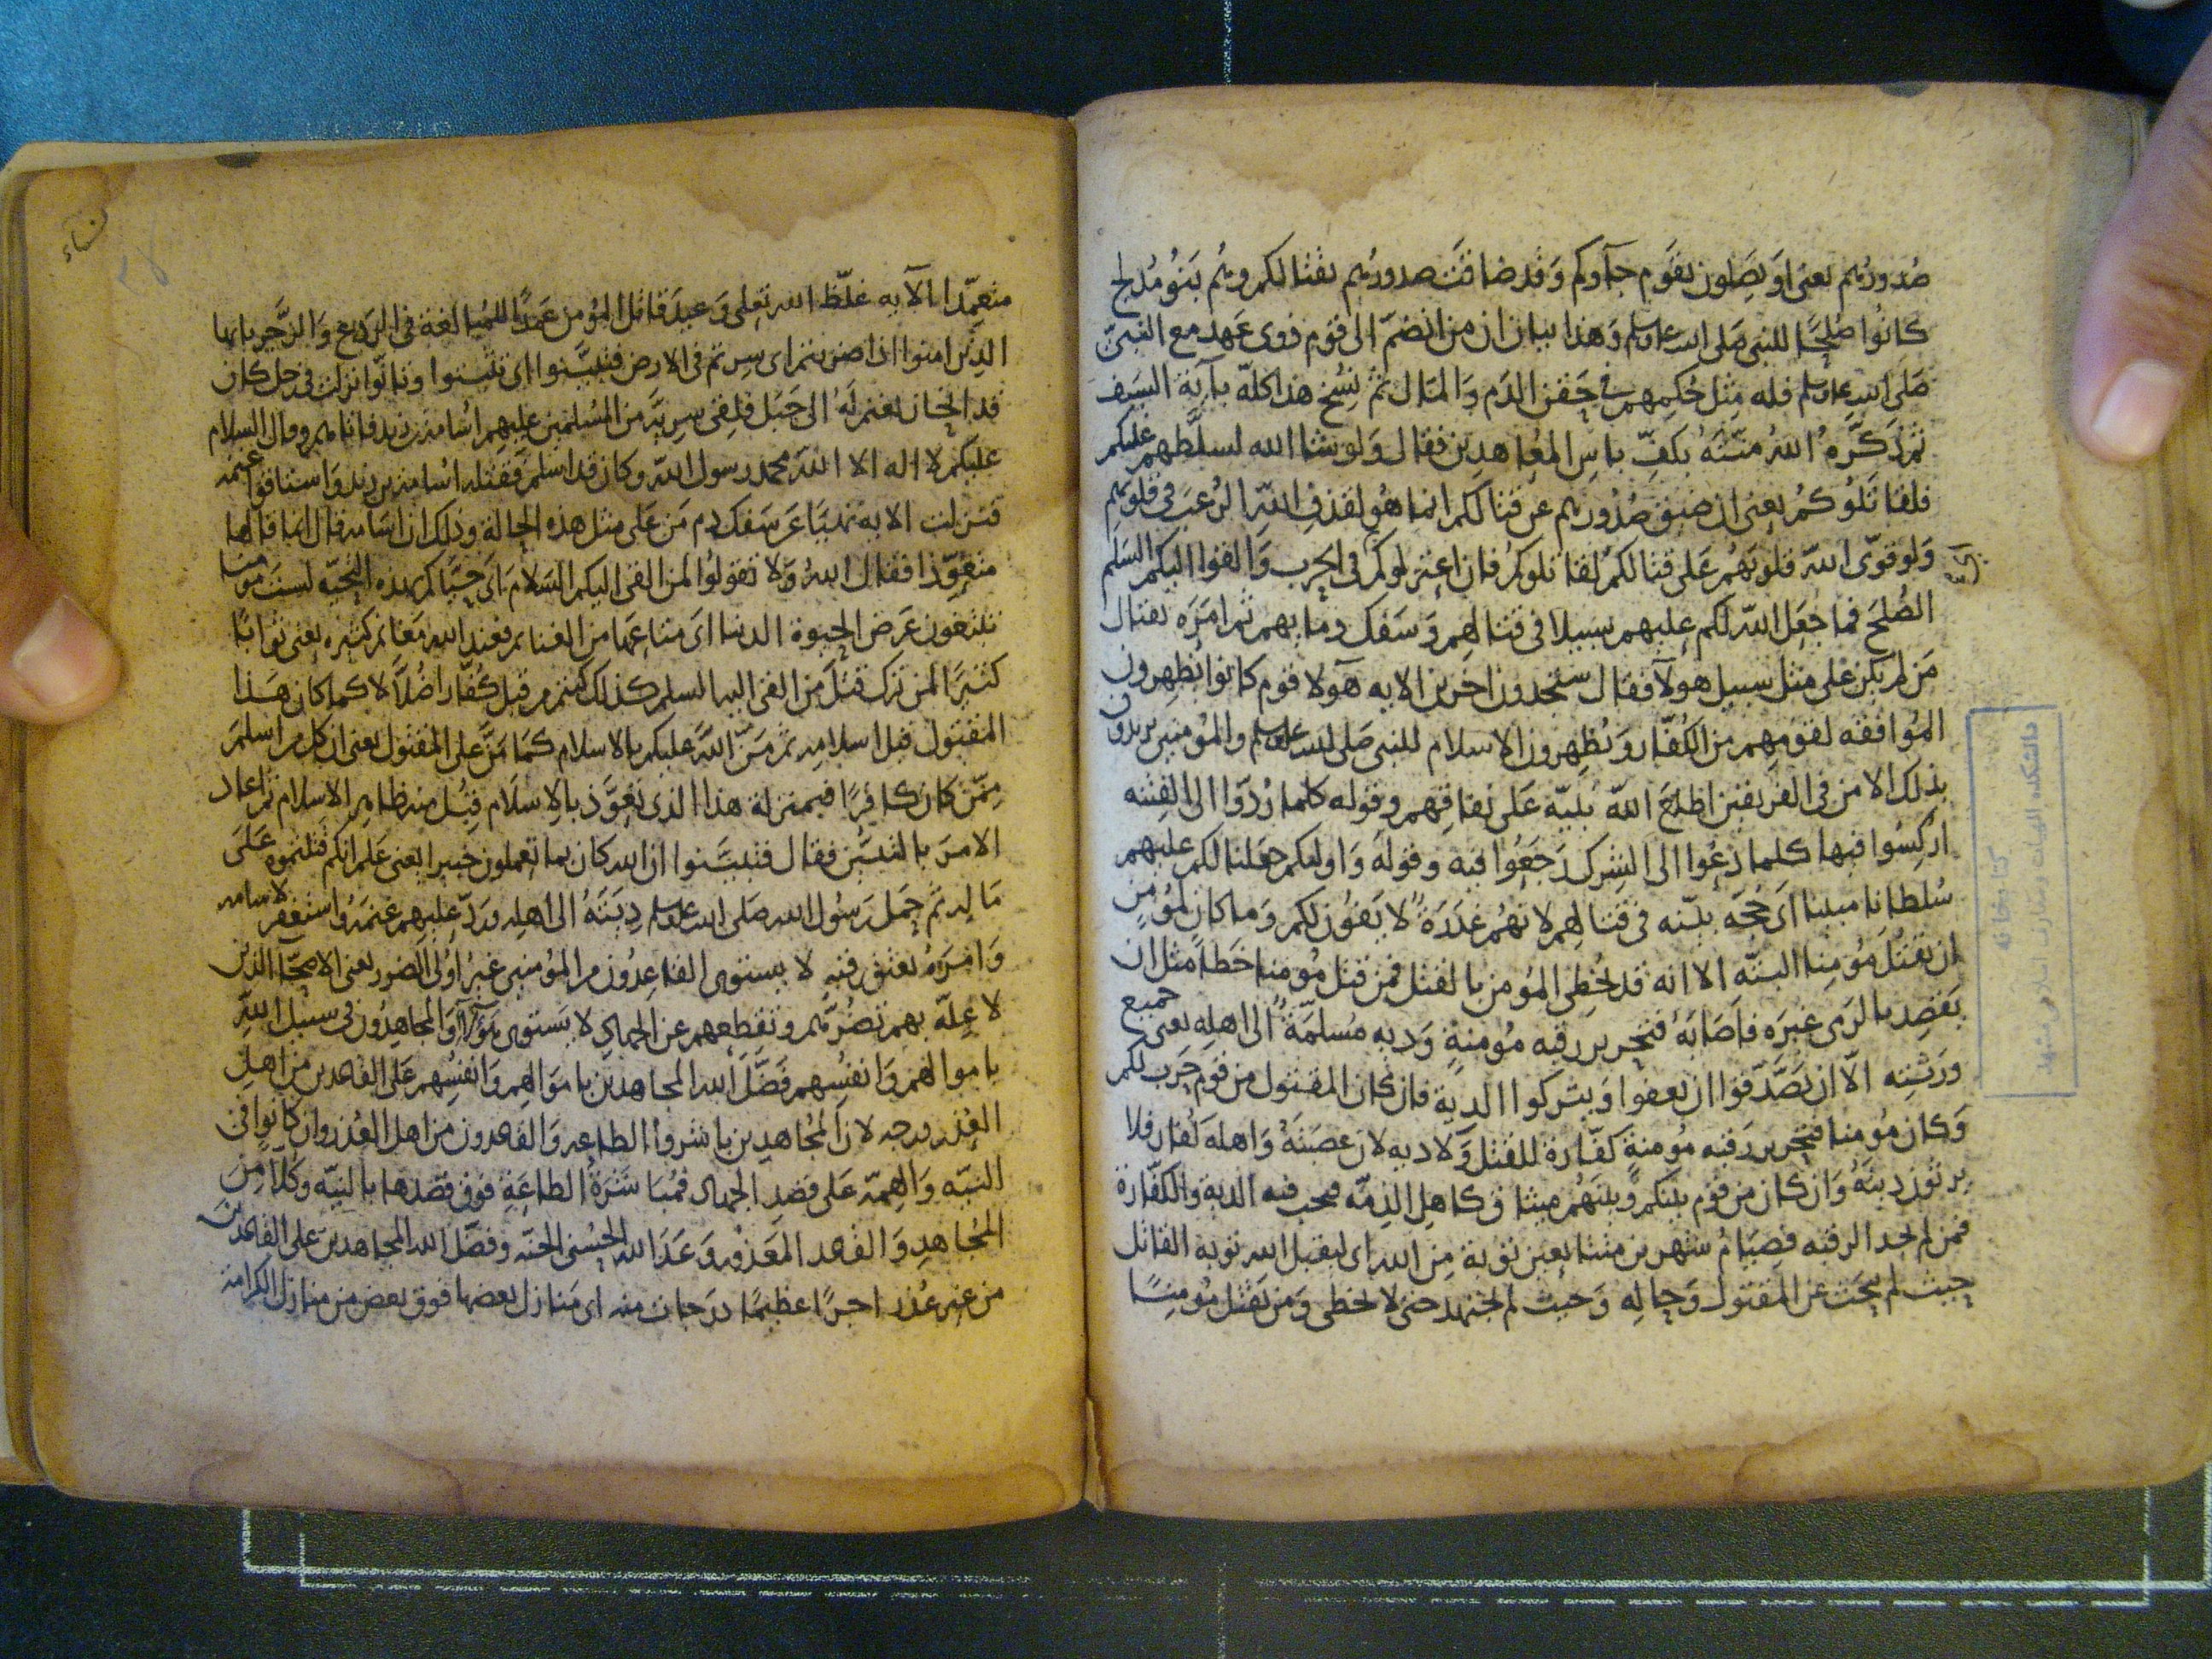 صُدورُهم يعنى او يَصِلون بقَوم جآوكم وَقد ضاقت صدورُهم بقتالكم وهُم بَنُو مُدلج
كانُوا صُلحًا للنبى صَلى الله علىه وسلم وَهذا بيان ان من انضمّ الى قوم ذوى عَهد مع النبىّ
صَلى الله علىه وسلم فله مِثل حُكمِهم فى حَقن الدَم وَالمَال ثمّ نُسخ هذا كلّه بآية السَيف
ثم ذَكَّرهُ اللهُ منّتَهُ بكَفّ باسِ المُعاهدِين فقال وَلو شا الله لسلّطهم عليكم
فلقاتَلُوكُم يعنى ان ضيق صُدُورِهم عن قتالكم انما هُو لقذفِ اللهِ الرُعبَ فى قلوبهم
وَلو قوّى الله قلوبَهُم عَلى قتالكم لقاتلوكم فان اعتزلوكم فى الحرب وَالقوا اليكم السَلم
الصُلحَ فما جعَل الله لكم عليهم سبيلا فى قتالهم وَسَفك دمايهم ثم امَرَه بقتال
مَن لم يكن على مثل سبيل هولآ فقال ستجدون اخَرين الايه هَولآ قوم كانوا يُظهِرون
المُوافقه لقومِهم من الكُفّار وَيُظهرون الاسلام للنبى صَلى الله علىه وسلم والمؤمنين يريدون
بذلك الامن فى الفريقين اطلعَ اللهُ نبيّه عَلى نفاقِهم وقوله كلما رُدّوا الى الفتنه
اركِسُوا فيها كلما دُعُوا الى الشرك رَجَعُوا فيه وقوله وَاوليكم جعلنا لكم عليهم
سُلطانا مبينا اى حُجّه بيّنه فى قتالِهم لانهُم غدَرَةٌ لا يَفوُن لكم وَما كان لمُؤمنٍ
ان يقتُل مُؤمِنا البتّه الا انه قد يُخطِى المُؤمن بالقتل فمن قتل مُومنا خَطاً مثل ان
يَقصِد بالرَمى غيرَه فاصَابَهُ فتحرير رقبه مُومنةٍ وَديه مُسَلمَةٌ الى اهلِه يعنى جميع
ورَثتِه الّا ان يَصَّدّقوا ان يعفوا وَيتركوا الديةَ فان كان المقتول من قوم حَربٍ لكم
وَكان مُومنا فتحرير رَقبه مُومنةٍ كفّارة للقتل وَلا ديه لان عصَبَتَهُ وَاهلَه كُفار فلا
يرثون ديتَهُ وَان كان من قوم بينكم وَبينهُم ميثاق كاهل الذِمّه فيجب فيه الدية والكفّارة
فمن لم يجد الرقبه فصِيَامُ شهرين متتابعين توبة مِن الله اى ليقبل الله توبة القاتل
حيث لم يبحَث عن المقتول وَحالِه وَحيث لم يجتهد حتى لا يخطى وَمن يَقتل مُومنًا
الآيه
نساء
متعمِّدا الآيه غلّظ الله تعالى وَعيدَ قاتل المُؤمن عَمدًا للمُبالغة فى الردع وَالزَّجر ياايها
الذين امنوا اذا ضربتم اى سِرتم فى الارض فتبيَّنوا اى تثبتوا وتانّوا نزلت فى رجل كان
قد انحاز بغنمٍ لَهُ الى جَبَل فلقى سريةً من المُسلمين عليهم اُسامة بن زيد فاتاهم وقال السلام
عليكم لا اله الا اللهُ محمد رسول اللهِ وكان قد اسلمَ فقتله اُسامة بن زيد وَاستاقوا غنمه
فنزلت الايه نهيًا عن سَفك دم مَن عَلى مثل هذه الحالة وذلك ان اسَامه قال انما قالها
متعوِّذا فقال اللهُ وَلا تقولُوا لمن القى اليكم السَلامَ اى حيّاكم بهذه التحيّه لستَ مومنا
تبتغون عَرَض الحيوة الدنيا اى متاعَها من الغنايم فعند الله مَغانم كثيره يعنى ثوابًا
كثيرًا لمن ترك قتل من القى اليه السلم كذلك كنتم من قبل كُفّارا ضُلّالا كما كان هَذا
المقتول قبل اسلامِه ثم مَنّ اللهُ عليكم بالاسلام كمَا مَنَّ على المقتول يعنى ان كل من اسلمَ
مِمّن كان كافِرًا فبمنزلة هذا الذى تعوّذ بالاسلَام قُبِل منه ظاهر الاسلام ثم اعاد
الامرَ بالتبيُّن فقال فتبيَّنوا ان الله كان بما تعملون خبيرا يعنى عَلم انكم قتلتموه عَلى
مَالِه ثم حَمل رَسُول الله صَلى الله علىه وسلم دِيَتَهُ الى اهلِه وَردّ عليهم غنمَهُ وَاستغفر لاسامه
وَامَرهُ بعتق رقبه لا يستوى القاعدُون من المؤمنين غيرُ اُولى الضرر يعنى الاصحّآ الذين
لا عِلّه بهم تضُرّهم وتقطعهم عن الجهاد لا يَستوى هؤلآء وَالمجاهِدُون فى سبيل اللهِ
باموالهم وَانفسِهم فَضّل اللهُ المجَاهدِين بامَوالهم وَانفسِهم عَلى القاعدين من اهل
العُذر درجه لان المُجاهدِين باشروا الطاعه وَالقاعدون من اهل العُذر وان كانوا فى
النيّه وَالهِمّه عَلى قصدِ الجهاد فمُباشَرةُ الطاعَةِ فوق قصدها بالنيّه وَكلّا مِن
المُجاهدِ وَالقاعد المعَذور وَعَدَ الله الحُسنى الجنّه وفضّل الله المجاهدين على القاعدين
من غير عُذر اجرًا عظيمًا درَجات منه اى مَنازل بعضها فوق بعض من منازل الكرامة